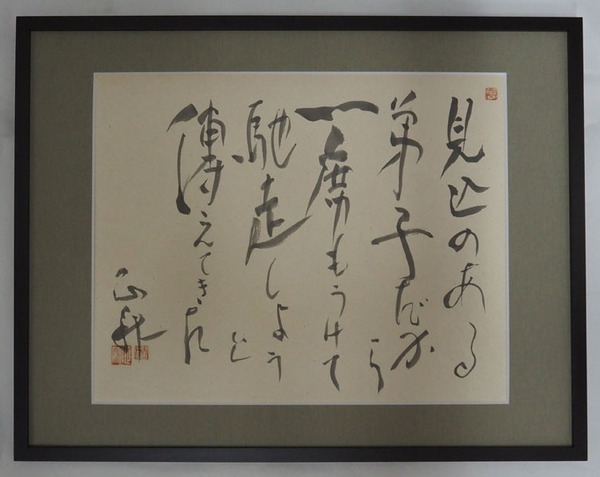 見込のある
弟子だから
一席もうけて
馳走しよう
と
傳えてきれ